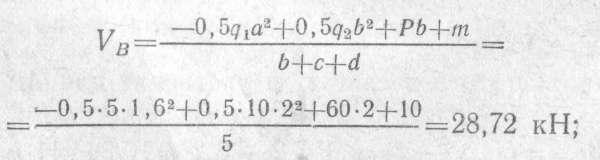 V_B = (—0,5q₁a²+0,5q₂b²+Pb+m)/(b+c+d) =
= (—0,5·5·1,6²+0,5·10·2²+60·2+10)/5 = 28,72 кН;